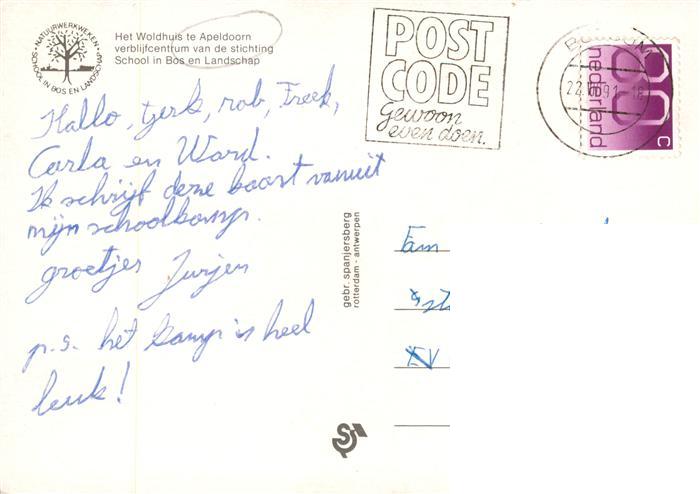 NATUURWERKWEKEN
SCHOOL IN BOS EN LANDSCHAP
Het Woldhuis te Apeldoorn
verblijfcentrum van de stichting
School in Bos en Landschap
POST
CODE
Gewoon
even doen.
nederland
60 c
Hallo, tjerk, rob, Freek,
Carla en Ward.
Ik schrijf deze kaart vanuit
mijn schoolkamp.
groetjes Jurjen
p.s. het kamp is heel
leuk!
gebr. spanjersberg
rotterdam - antwerpen
Fam